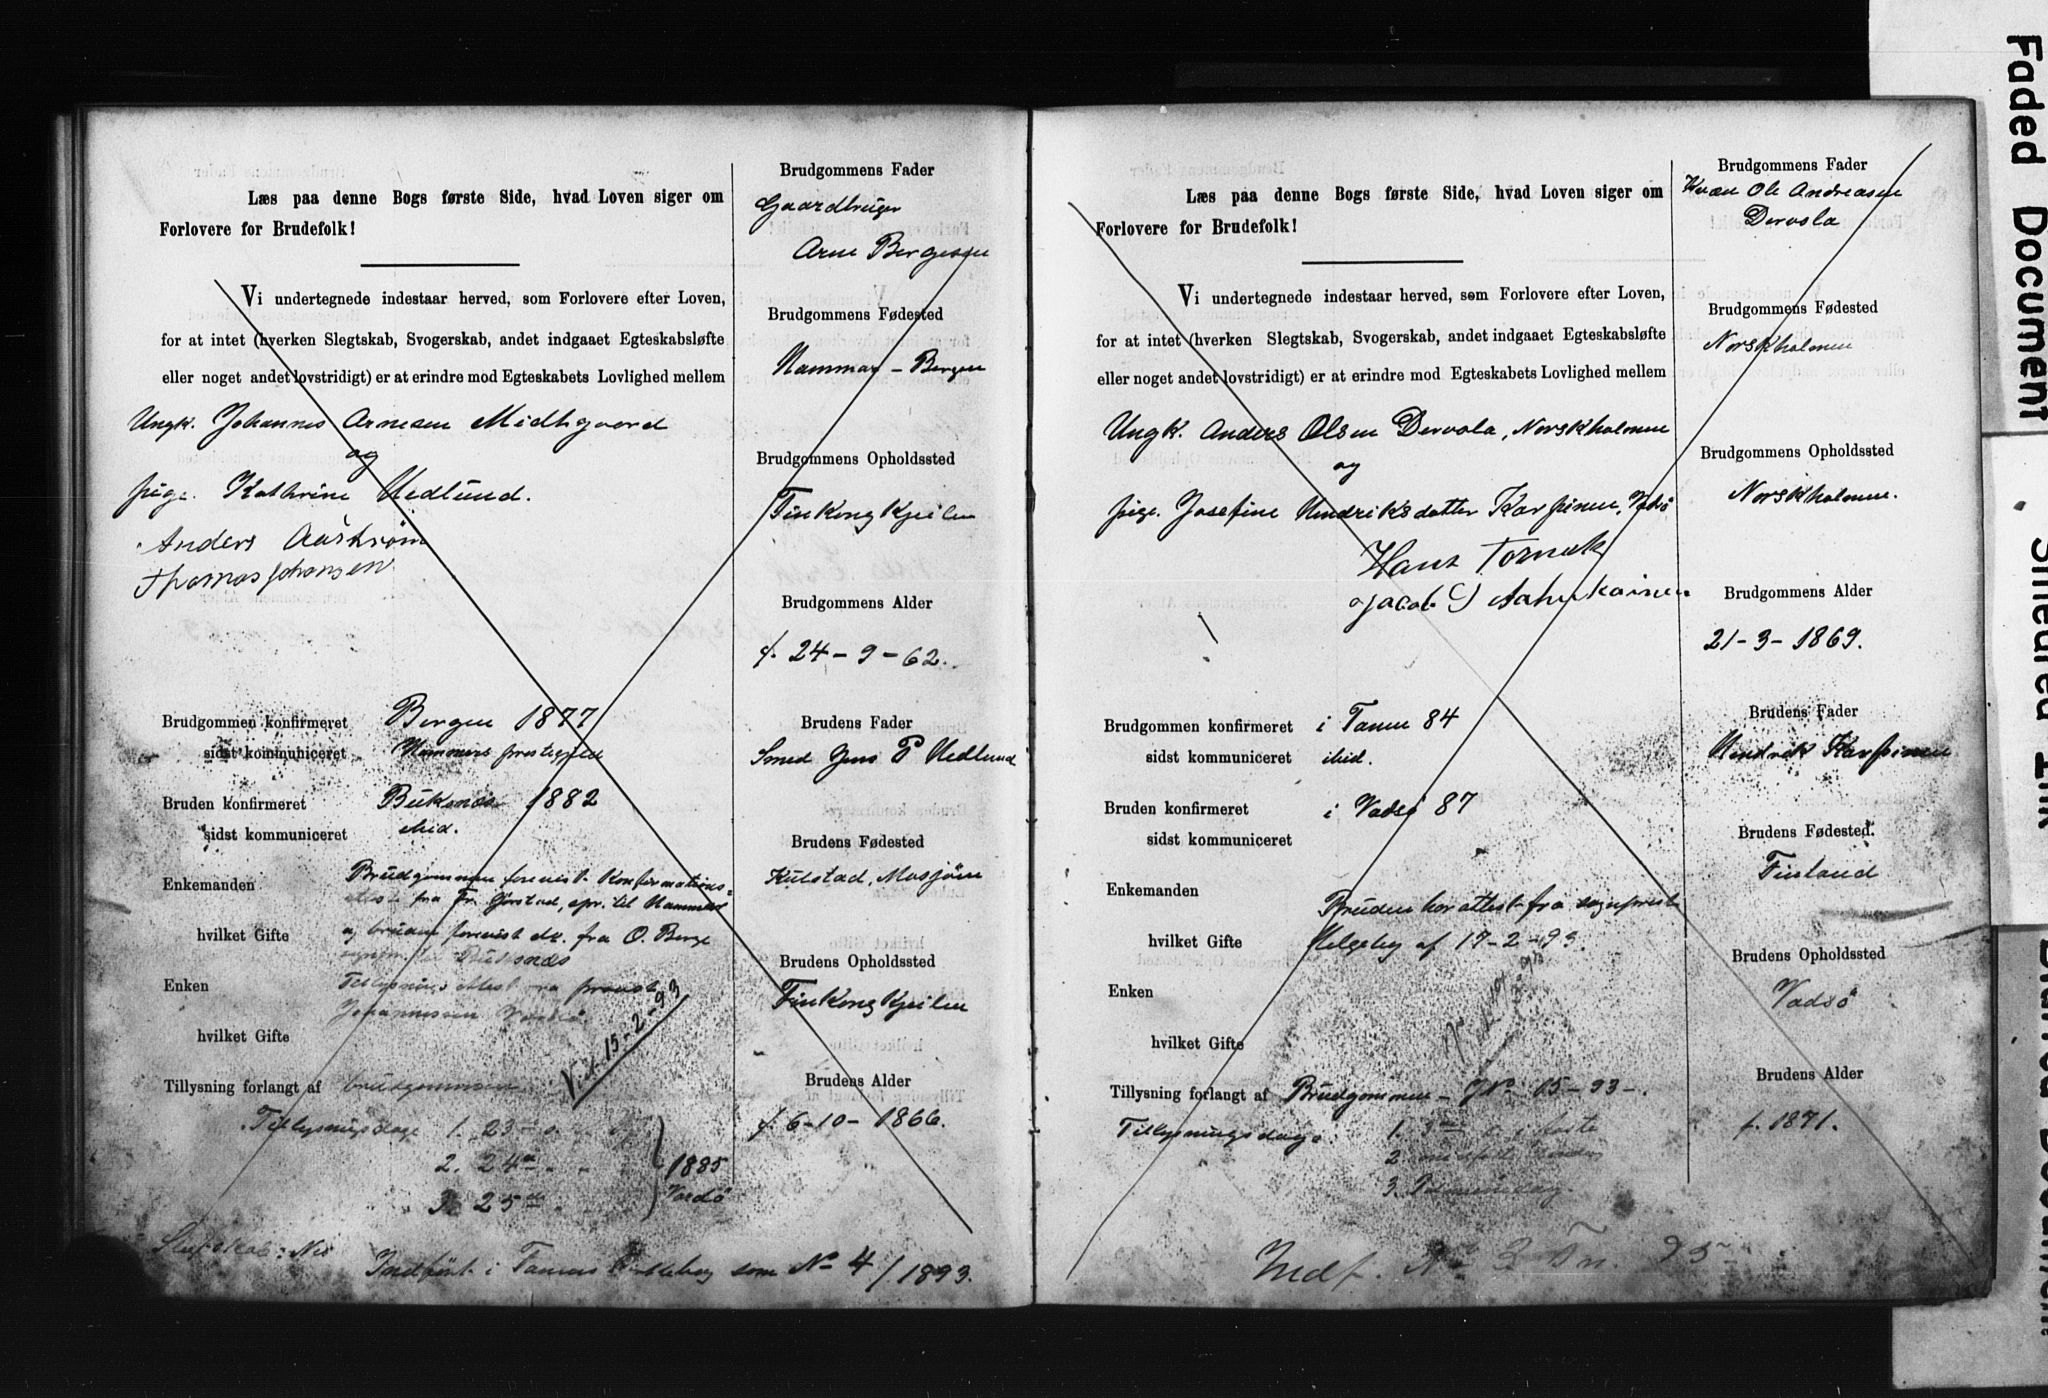 Læs paa denne Bogs første Side, hvad Loven siger om
Forlovere for Brudefolk!
Vi undertegnede indestaar herved, som Forlovere efter Loven,
for at intet (hverken Slegtskab, Svogerskab, andet indgaaet Egteskabsløfte
eller noget andet lovstridigt) er at erindre mod Egteskabets Lovlighed mellem
Ungk. Johannes Arnesen Midtgaard
og
pige. Kathrine Hedlund.
Anders Aaström
Thomas Johansen
Brudgommen konfirmeret Bergen 1877
sidst kommuniceret Hammers prestegjeld
Bruden konfirmeret Buksnæs 1882
sidst kommuniceret ibid.
Enkemanden Brudgommen forevist Konfirmations=
attest fra Fr. Gjörstad, spr. til Hammer
hvilket Gifte og bruden forevist do. fra O. Berge
Buksnæs
Enken Tillysningsattest fra provst
Johannessen Vardö.
hvilket Gifte
Vid. 15-2-93
Tillysning forlangt af brudgommen
Tillysningsdage 1. 23de
2. 24de
3. 25de
1885
Vardö
Slægtskab: Nei
Indført i Tanens Kirkebog som No 4/1893.
Brudgommens Fader
Gaardbruger
Arne Bergesen
Brudgommens Fødested
Hammer - Bergen
Brudgommens Opholdssted
Finkongkjeilen
Brudgommens Alder
f. 24-9-62.
Brudens Fader
Smed Jens P Hedlund
Brudens Fødested
Kulstad, Mosjöen
Brudens Opholdssted
Finkongkjeilen
Brudens Alder
f. 6-10-1866.
Læs paa denne Bogs første Side, hvad Loven siger om
Forlovere for Brudefolk!
Vi undertegnede indestaar herved, som Forlovere efter Loven,
for at intet (hverken Slegtskab, Svogerskab, andet indgaaet Egteskabsløfte
eller noget andet lovstridigt) er at erindre mod Egteskabets Lovlighed mellem
Ungk. Anders Olsen Dervola, Norskholmen
og
pige. Josefine Hendriksdatter Karpinen,
Hans Tornek
Jacob
Brudgommen konfirmeret i Tanen 84
sidst kommuniceret ibid.
Bruden konfirmeret i Vadsö 87
sidst kommuniceret
Enkemanden
Bruden har attest fra sogneprest
hvilket Gifte Helgeby af 17-2-93.
Enken
hvilket Gifte
Tillysning forlangt af Brudgommen -
Tillysningsdage 1. 3die s. i faste
2. midfaste söndag
3.
Indf. No 3 Tn. 93
Brudgommens Fader
Kvæn Ole Andreasen
Dervola
Brudgommens Fødested
Norskholmen
Brudgommens Opholdssted
Norskholmen.
Brudgommens Alder
21-3-1869.
Brudens Fader
Hendrik Karpinen
Brudens Fødested.
Finland
Brudens Opholdssted
Vadsö
Brudens Alder
f. 1871.
Faded Document
Smeared Ink
Blurred Document